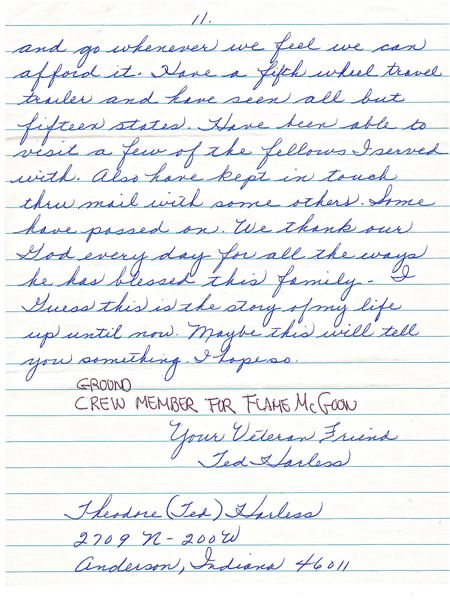 11.
and go whenever we feel we can
afford it. Have a fifth wheel travel
trailer and have seen all but
fifteen states. Have been able to
visit a few of the fellows I served
with. Also have kept in touch
thru mail with some others. Some
have passed on. We thank our
God every day for all the ways
he has blessed this family - I
Guess this is the story of my life
up until now. Maybe this will tell
you something. I hope so.
GROUND
CREW MEMBER FOR FLAME McGOON
Your Veteran Friend
Ted Harless
Theodore (Ted) Harless
2709 N - 200 W
Anderson, Indiana 46011